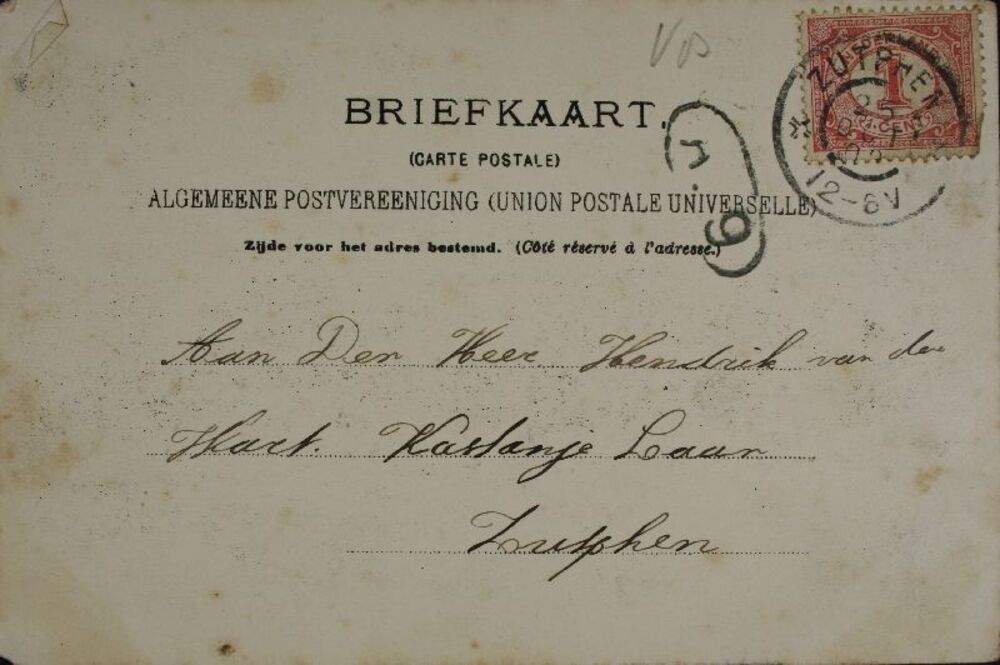 BRIEFKAART.
(CARTE POSTALE)
ALGEMEENE POSTVEREENIGING (UNION POSTALE UNIVERSELLE)
Zijde voor het adres bestemd. (Côté réservé à l'adresse.)
NEDERLAND
1
CENT
ZUTPHEN
12-8V
Aan Den Heer Hendrik van der
Hart. Kastanje Laan
Zutphen